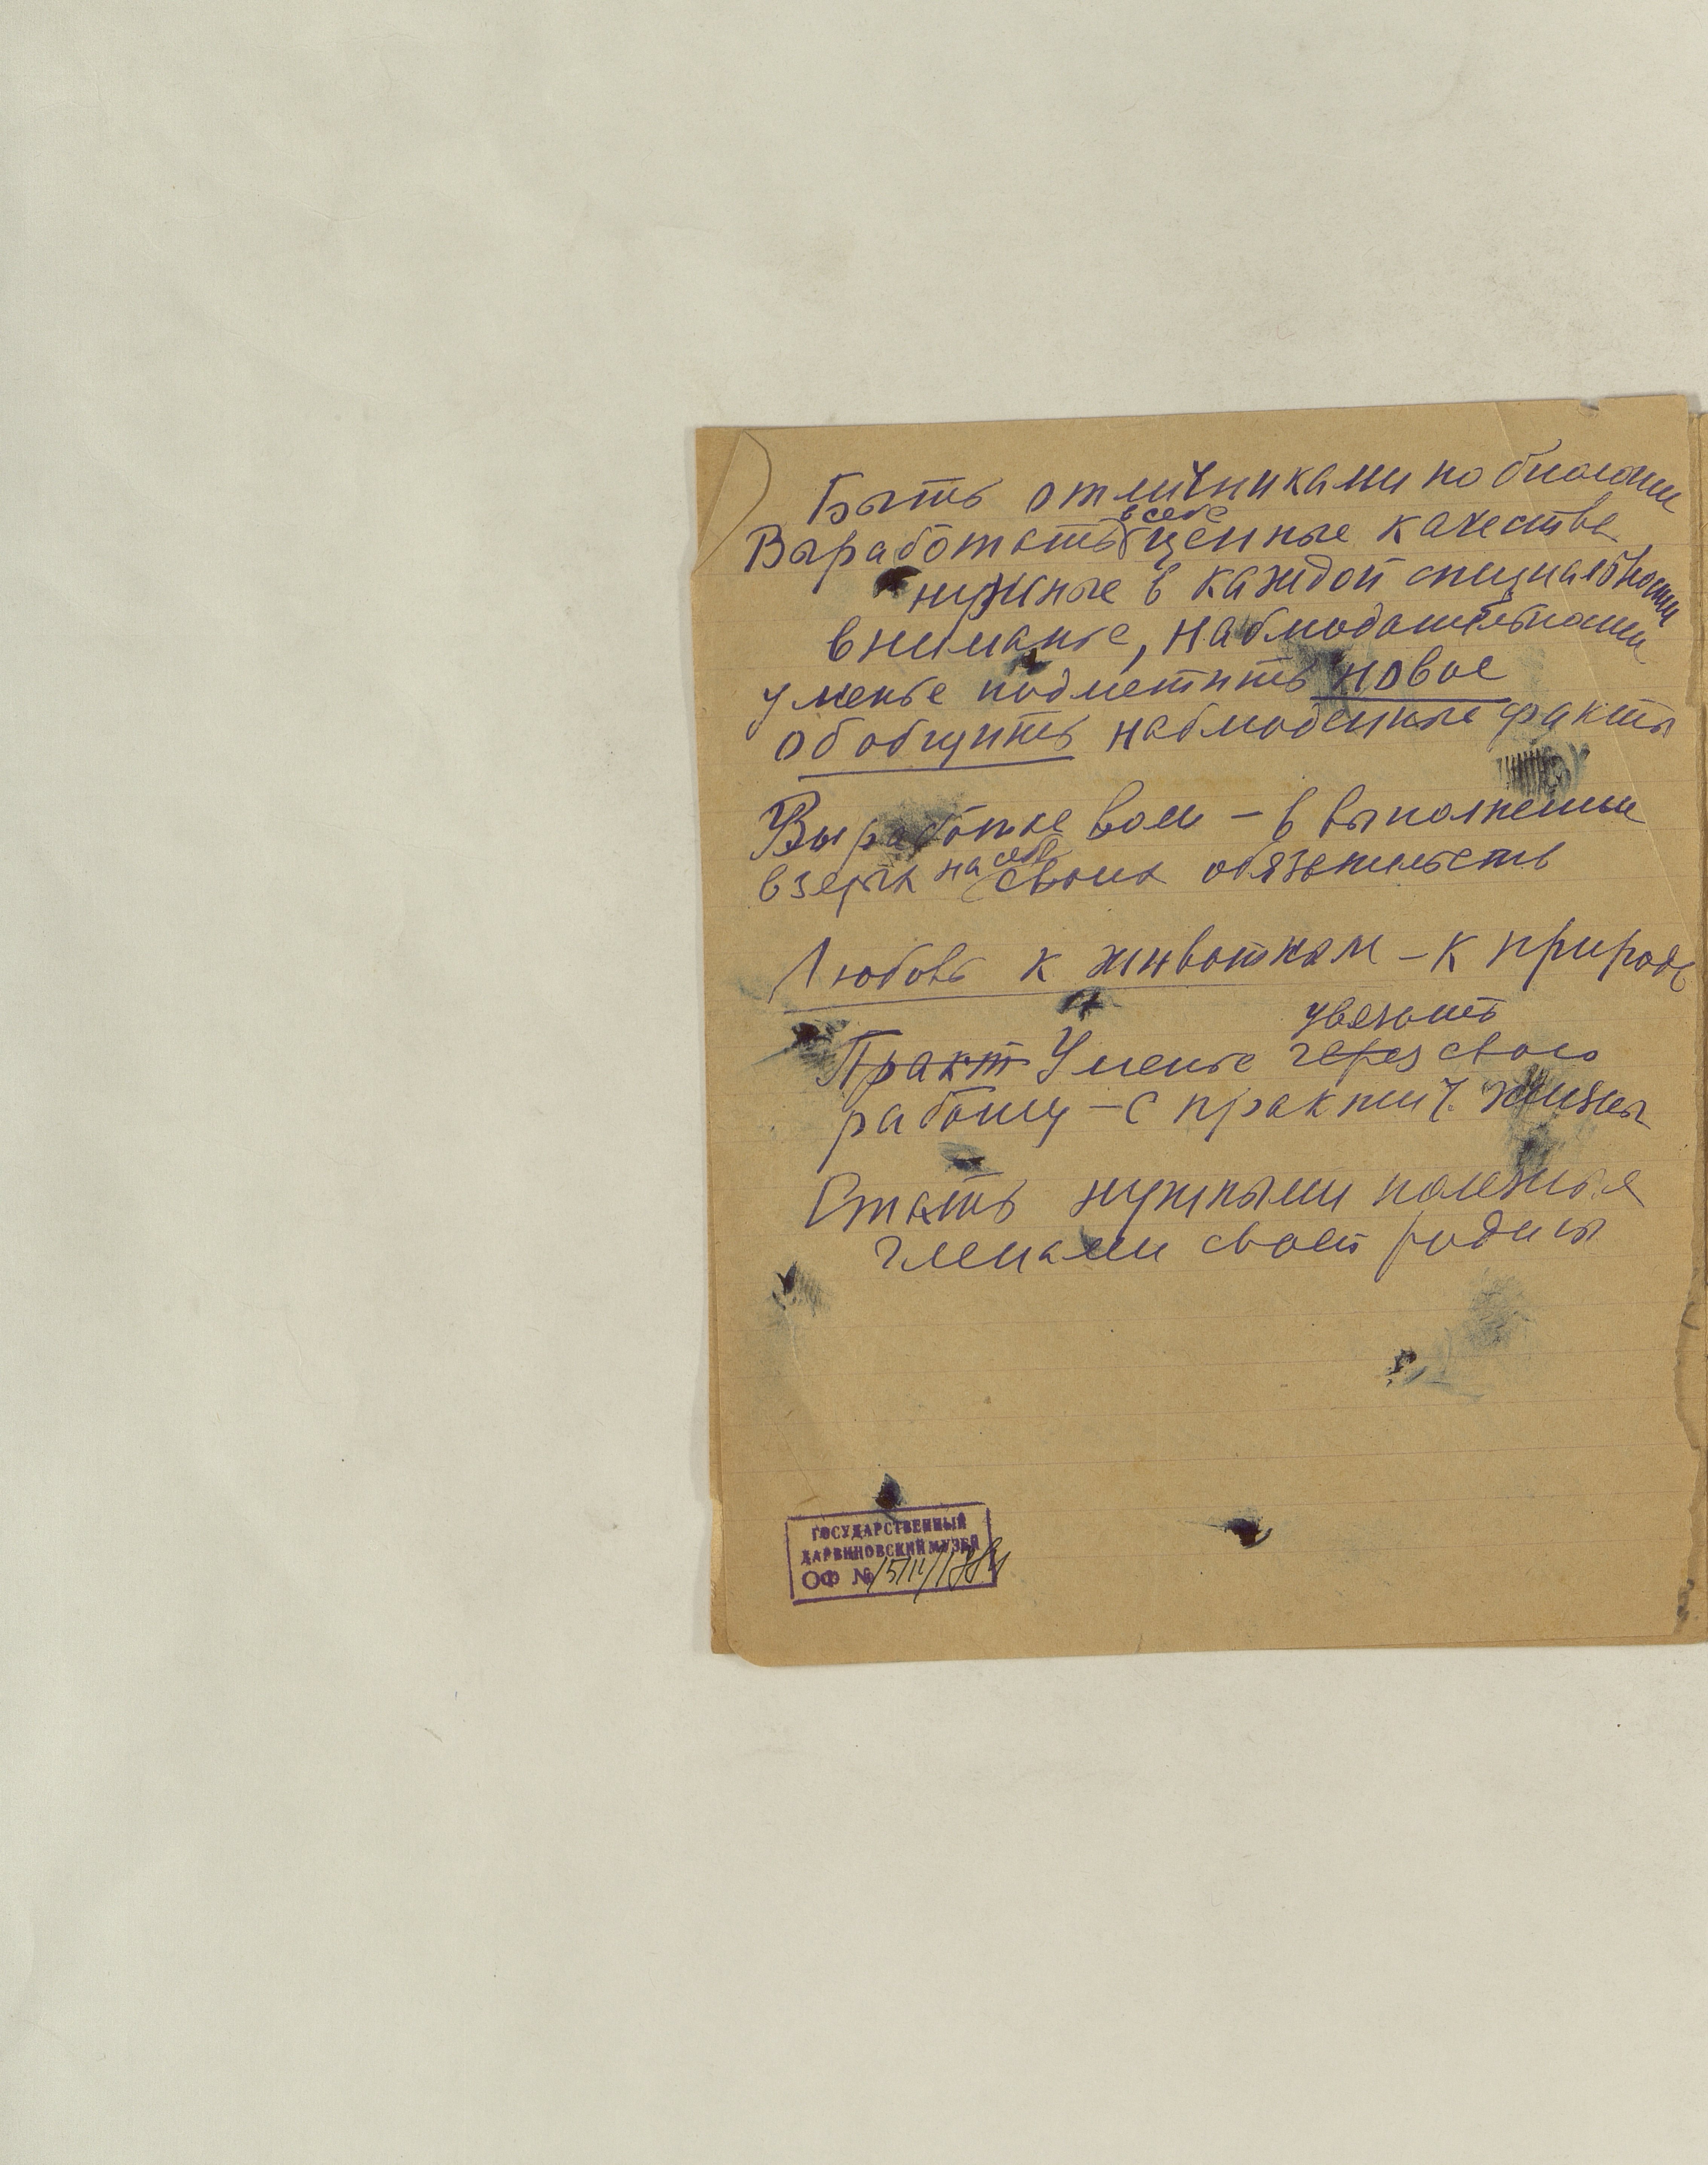 Быть отличниками по биологии
Выработать в себе ценные качества
нужные в каждой специальности
вниманье, наблюдательность
уменье подметить новое
обобщить наблюденные факты
Выработке воли – в выполнении
взятых на себя своих обязательств
Любовь к животным – к природе
увязать
Практ Уменье через свою
работу – с практич. жизнью
Стать нужными полезными
членами своей родины
ГОСУДАРСТВЕННЫЙ
ДАРВИНОВСКИЙ МУЗЕЙ
ОФ №